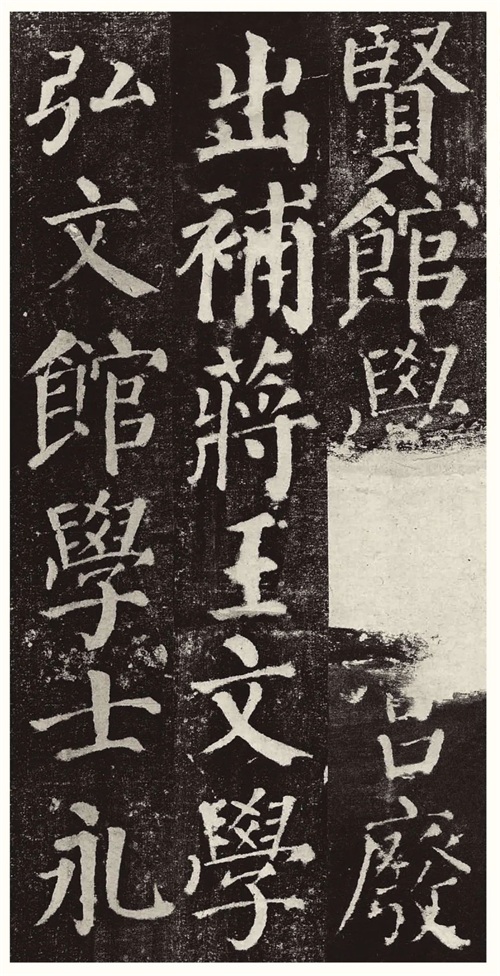 賢館學廢
出補蔣王文學
弘文館學士永